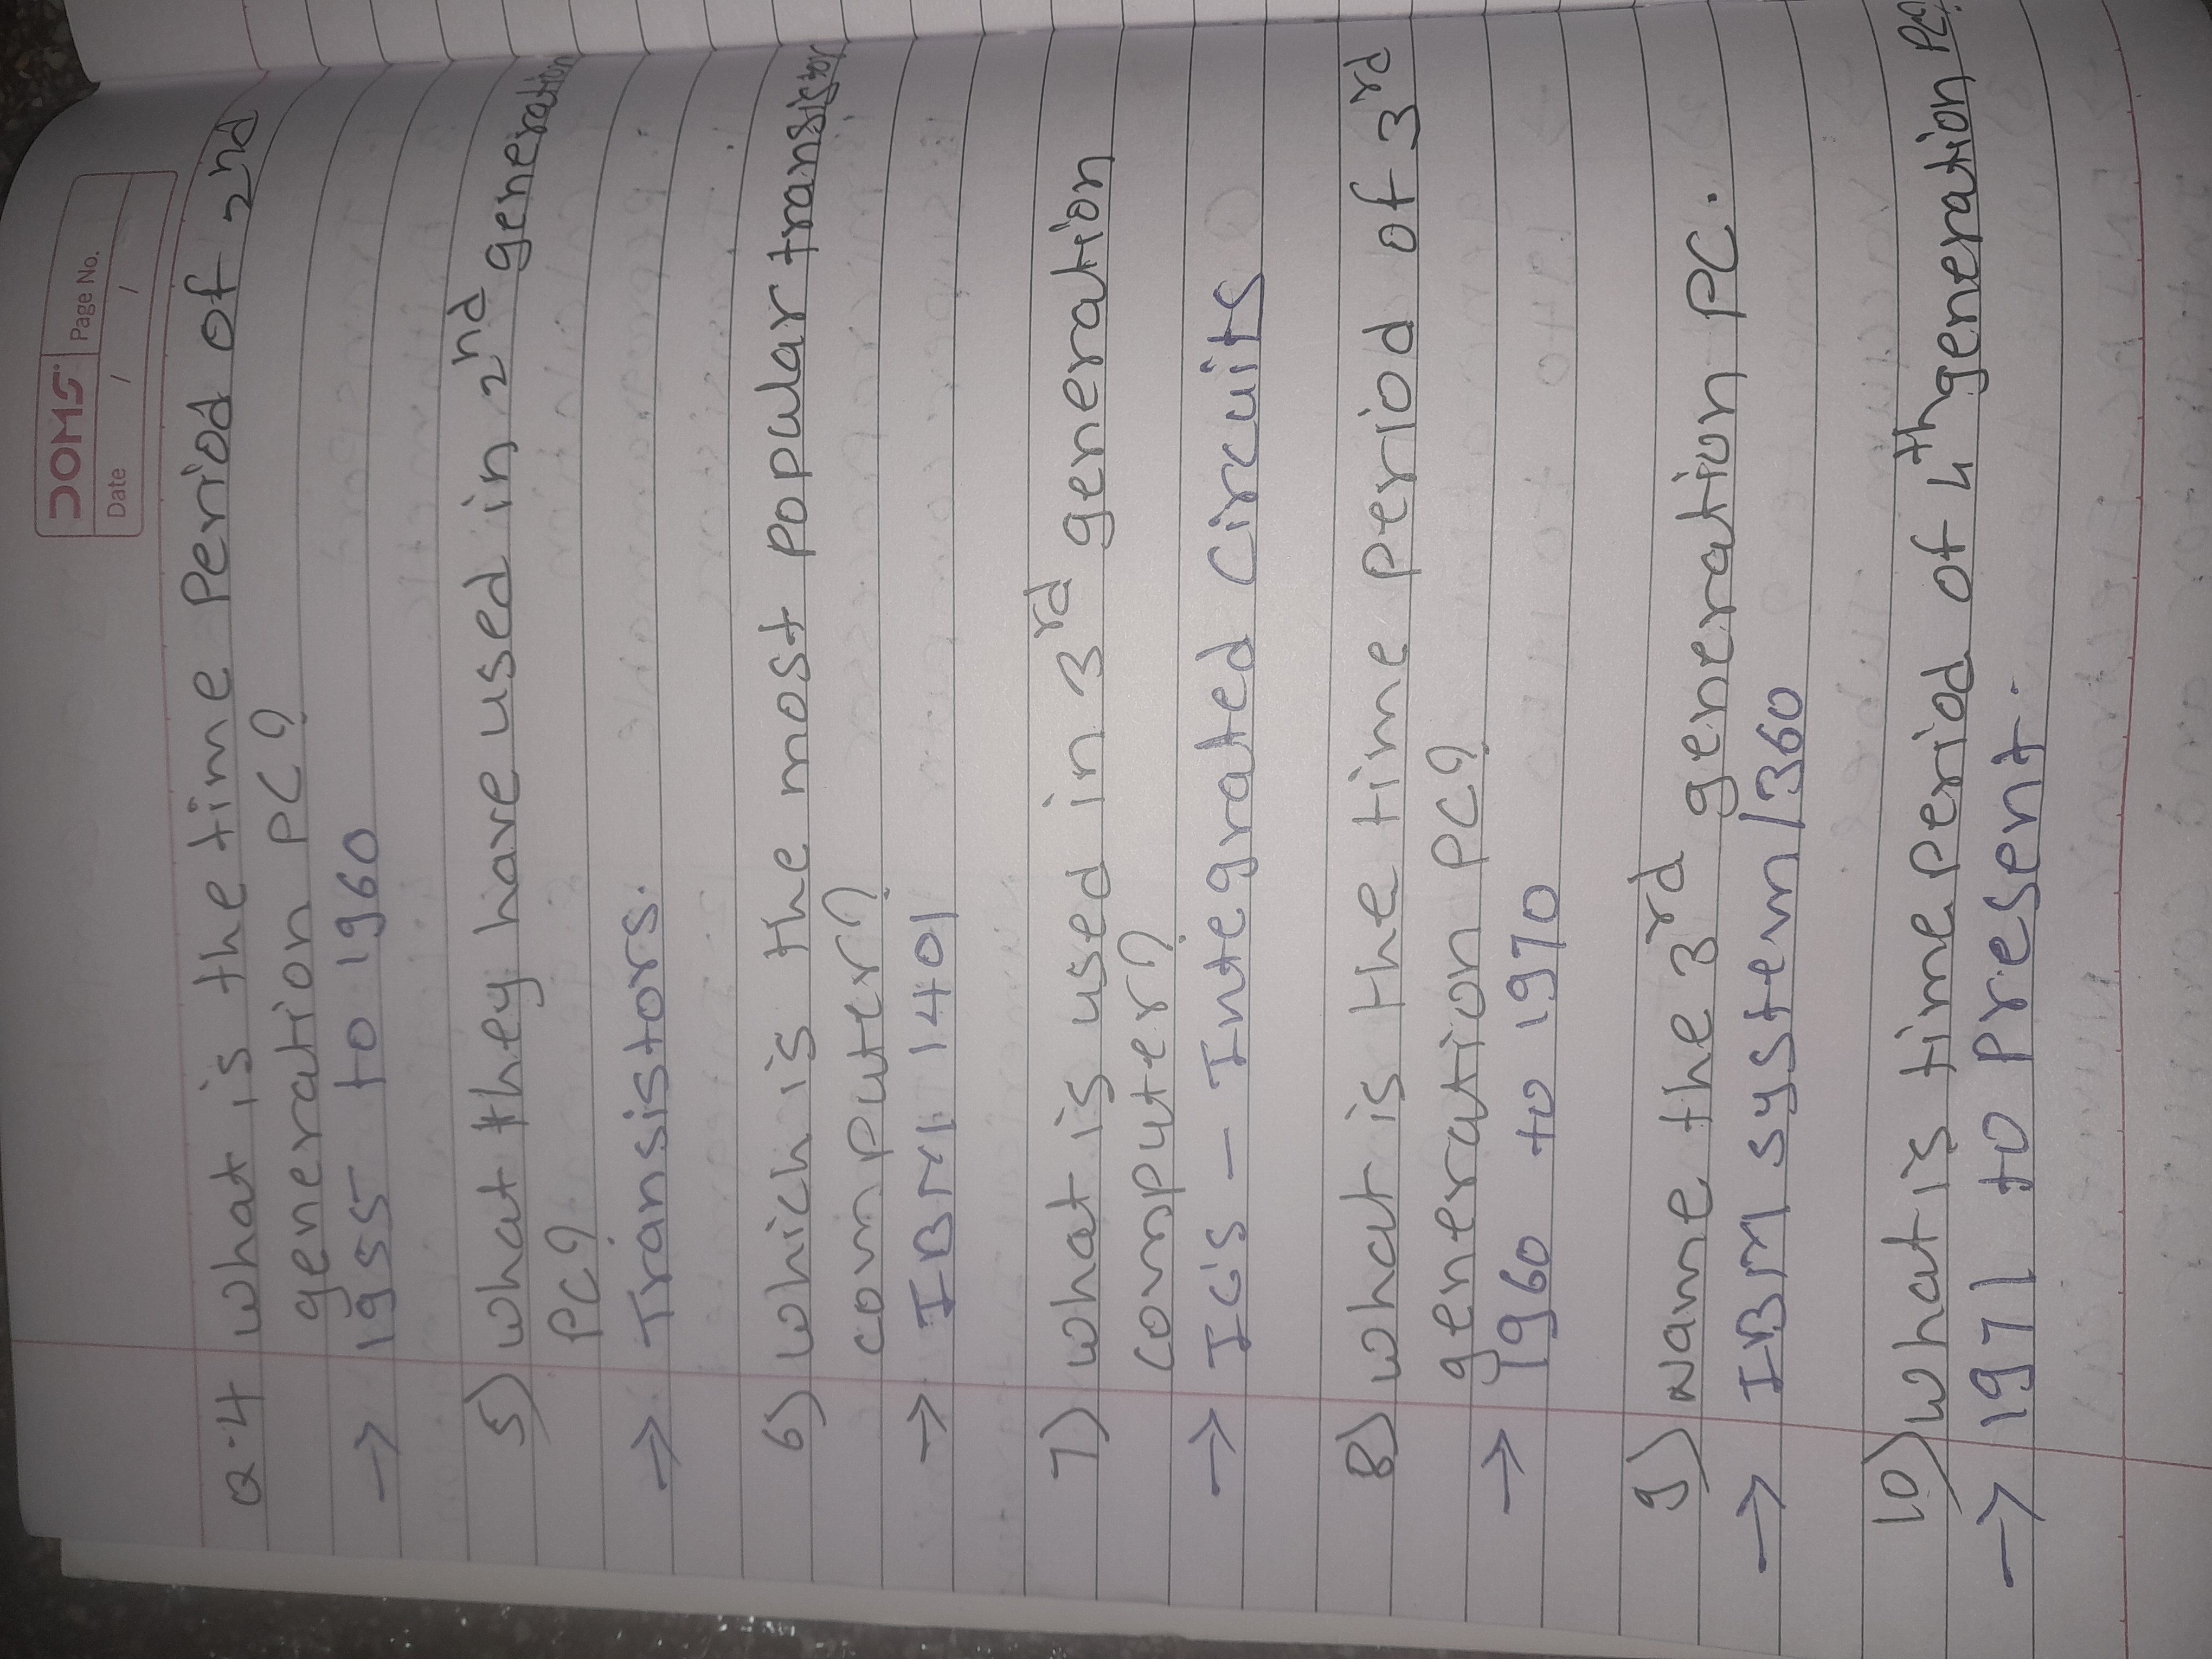 DOMS Page No.
Date / /
Q.4 What is the time Period of 2nd
generation PC?
→ 1955 to 1960
5) What they have used in 2nd generation
PC?
→ Transistors.
6) Which is the most popular transistor
computer?
→ IBM 1401
7) What is used in 3rd generation
computer?
→ IC's - Integrated Circuits
8) What is the time period of 3rd
generation PC?
→ 1960 to 1970
9) Name the 3rd generation PC.
→ IBM system/360
10) What is time period of 4th generation PC?
→ 1971 to Present.